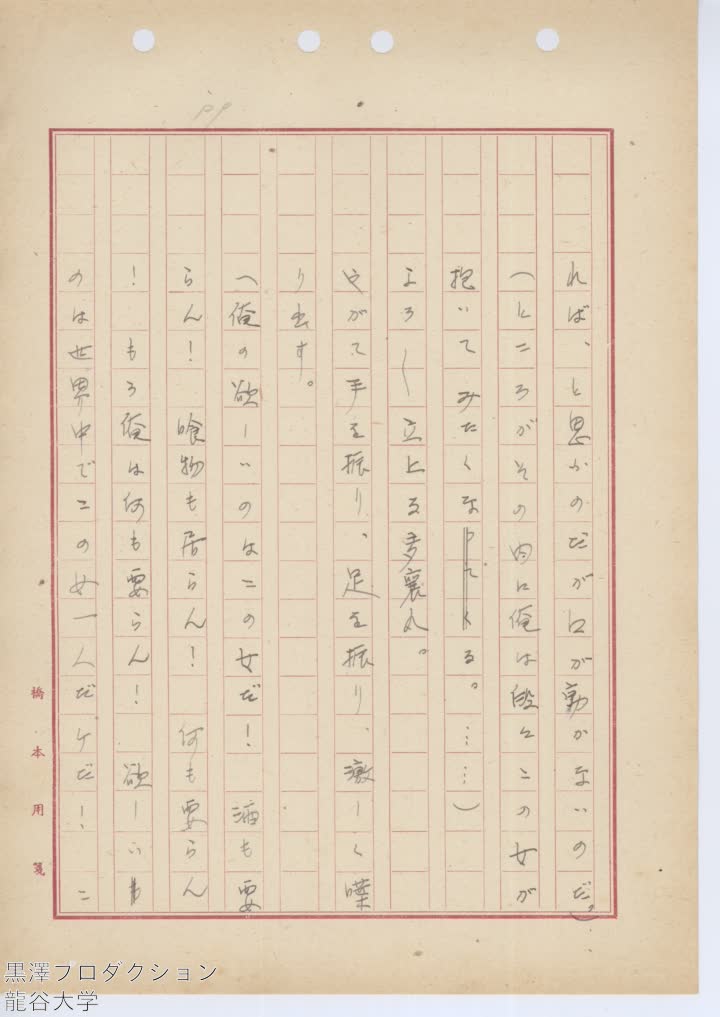 P9
れば、と思ふのだが口が動かないのだ。）
（ところがその内に俺は段々この女が
抱いてみたくなってくる。……）
よろ／＼立上る多襄丸。
やがて手を振り、足を振り、激しく喋
り出す。
（俺の欲しいのはこの女だ！　酒も要
らん！　喰物も居らん！　何も要らん
！　もう俺は何も要らん！　欲しい
のは世界中でこの女一人だケだ！　こ
橋本用箋
黒澤プロダクション
龍谷大学